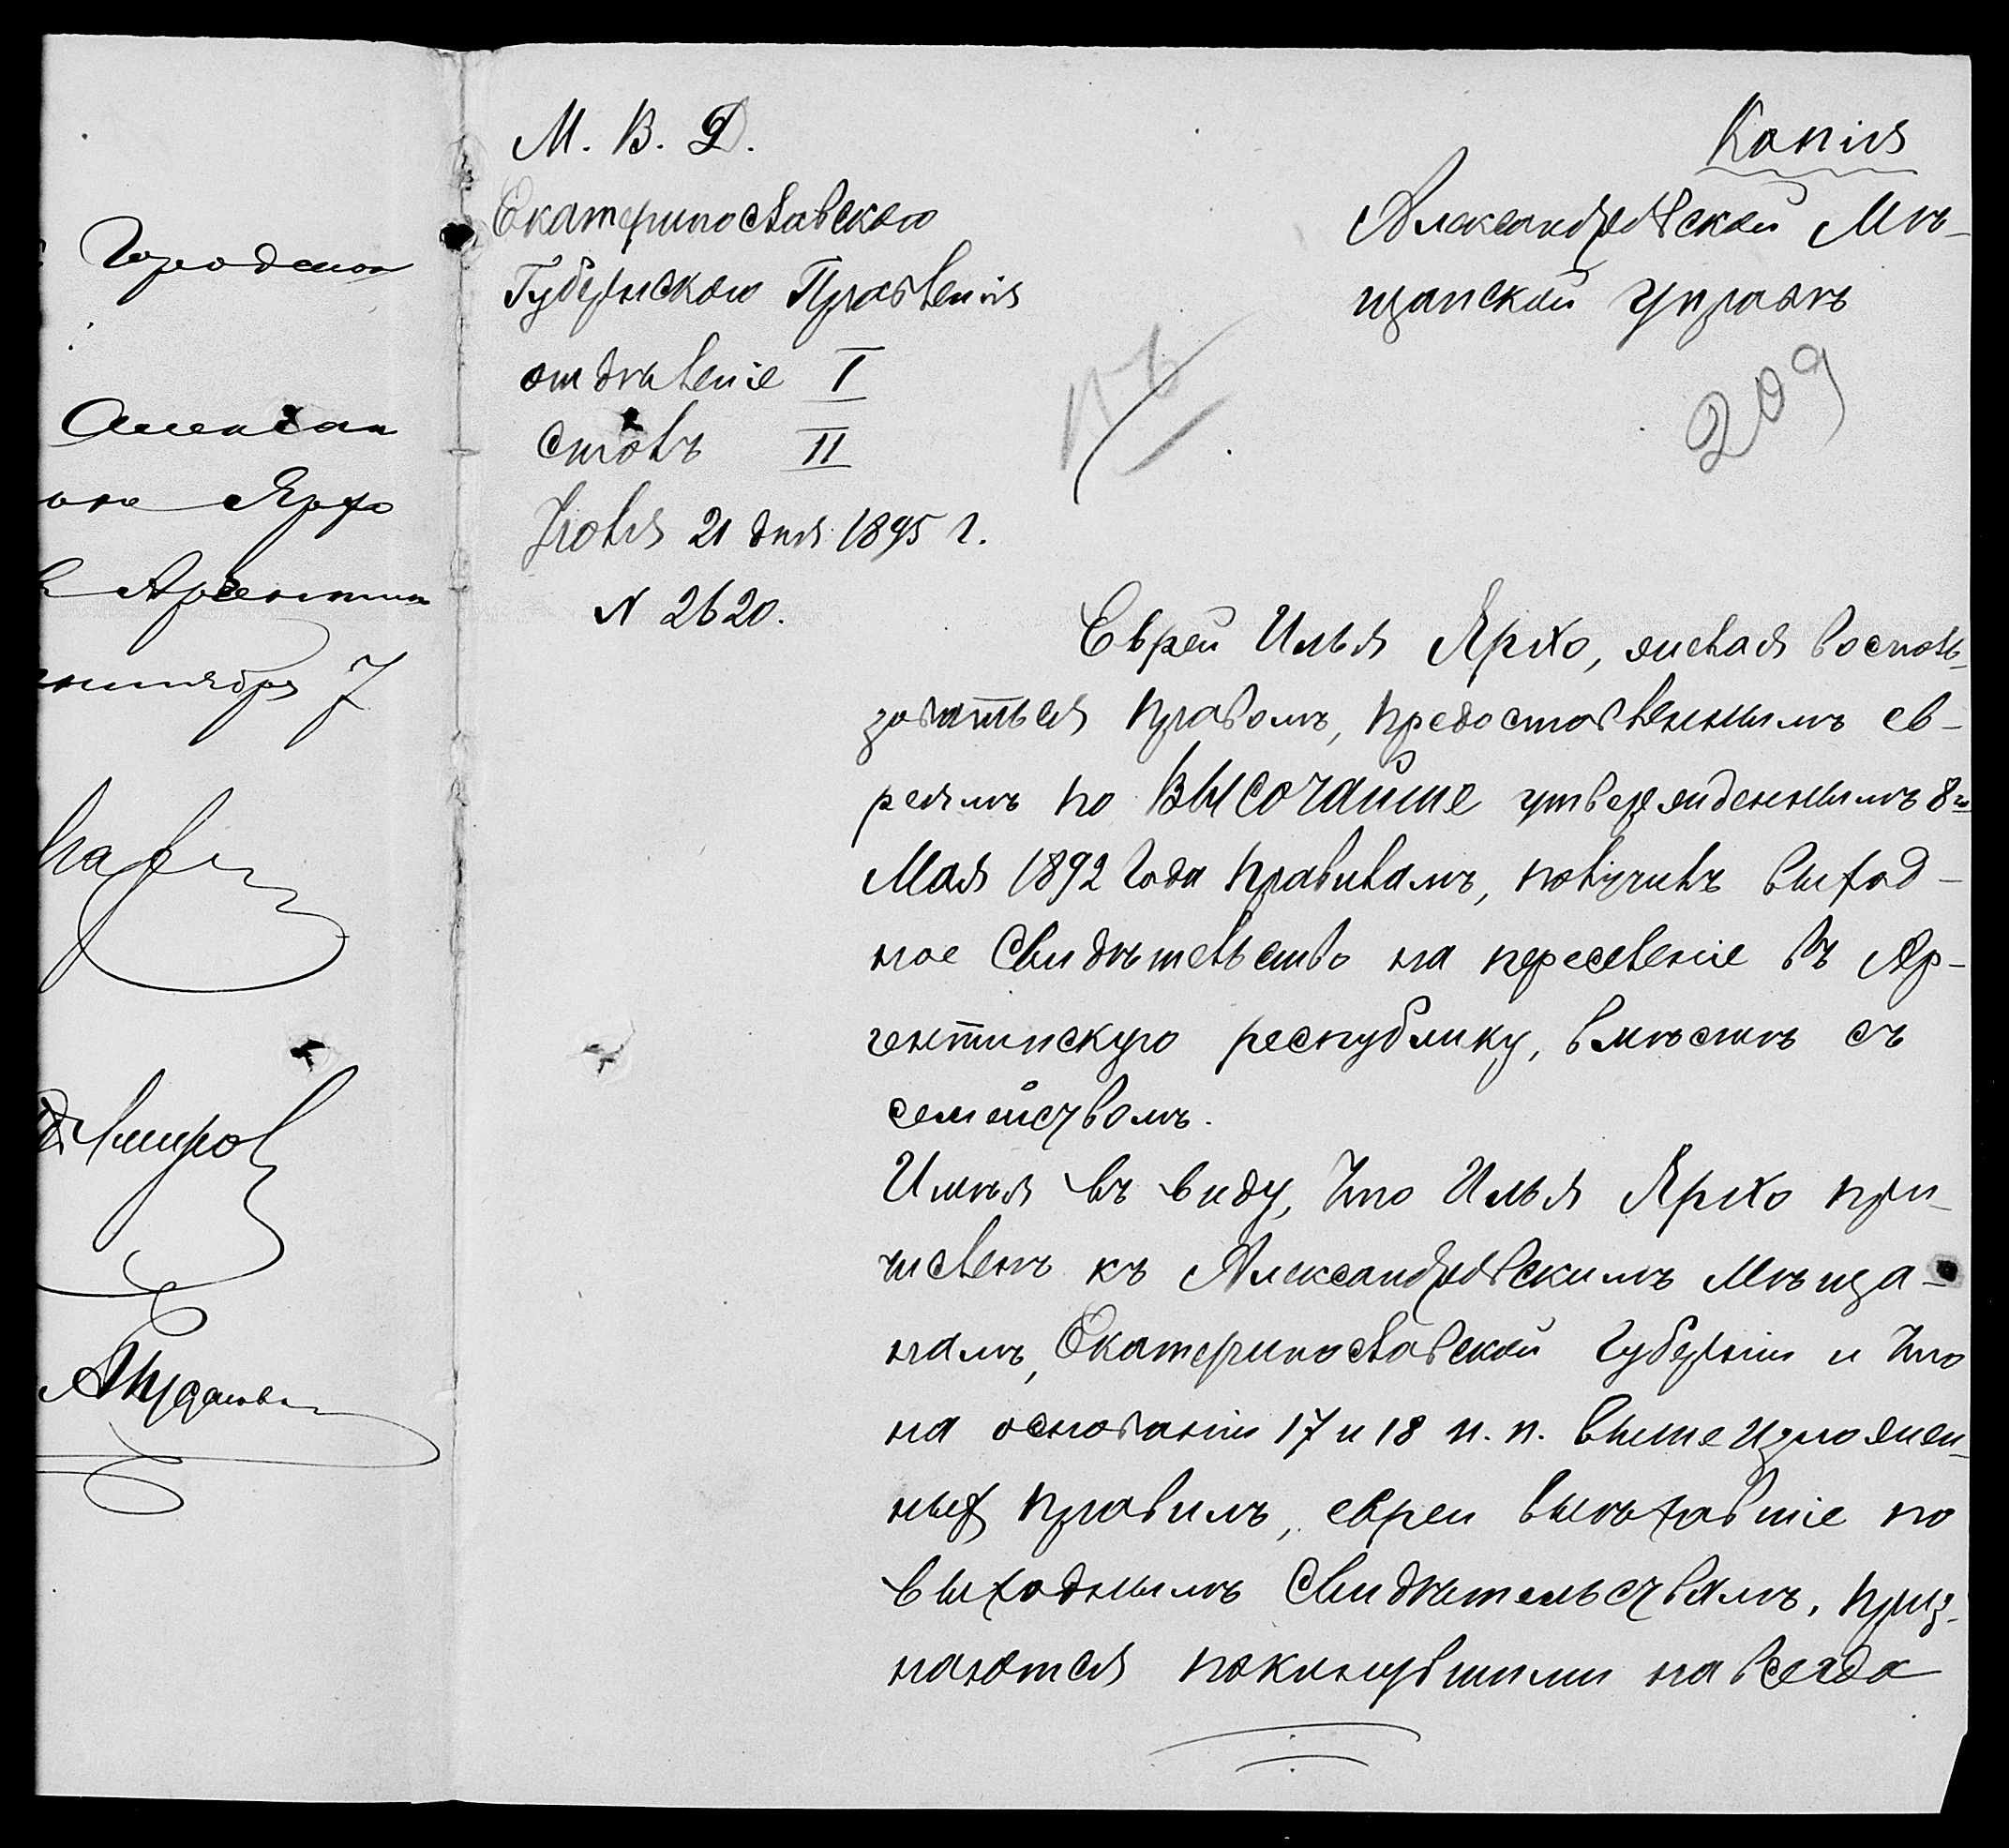 Городской
М. В. Д.
Екатеринославскаго
Губернскаго Правленія
отдѣленіе I
столъ II
Іюля 21 дня 1895 г.
N 2620.
Копія
Александровской Мѣ-
щанской Управѣ
209
Еврей Илья Ярхо, желая восполь-
зоваться правомъ, предоставленнымъ ев-
реямъ по ВЫСОЧАЙШЕ утвержденнымъ 8го
Мая 1892 года правиламъ, получилъ выход-
ное свидѣтельство на переселеніе въ Ар-
гентинскую республику, вмѣстѣ съ
семействомъ.
Имѣя въ виду, что Илья Ярхо при-
численъ къ Александровскимъ мѣща-
намъ, Екатеринославской губерніи и что
на основаніи 17 и 18 п. п. вышеизложен-
ных правилъ, евреи выѣхавшіе по
выходнымъ свидѣтельствамъ, приз-
наются покинувшими навсегда
Алексан
Ярхо
Аргентин
7